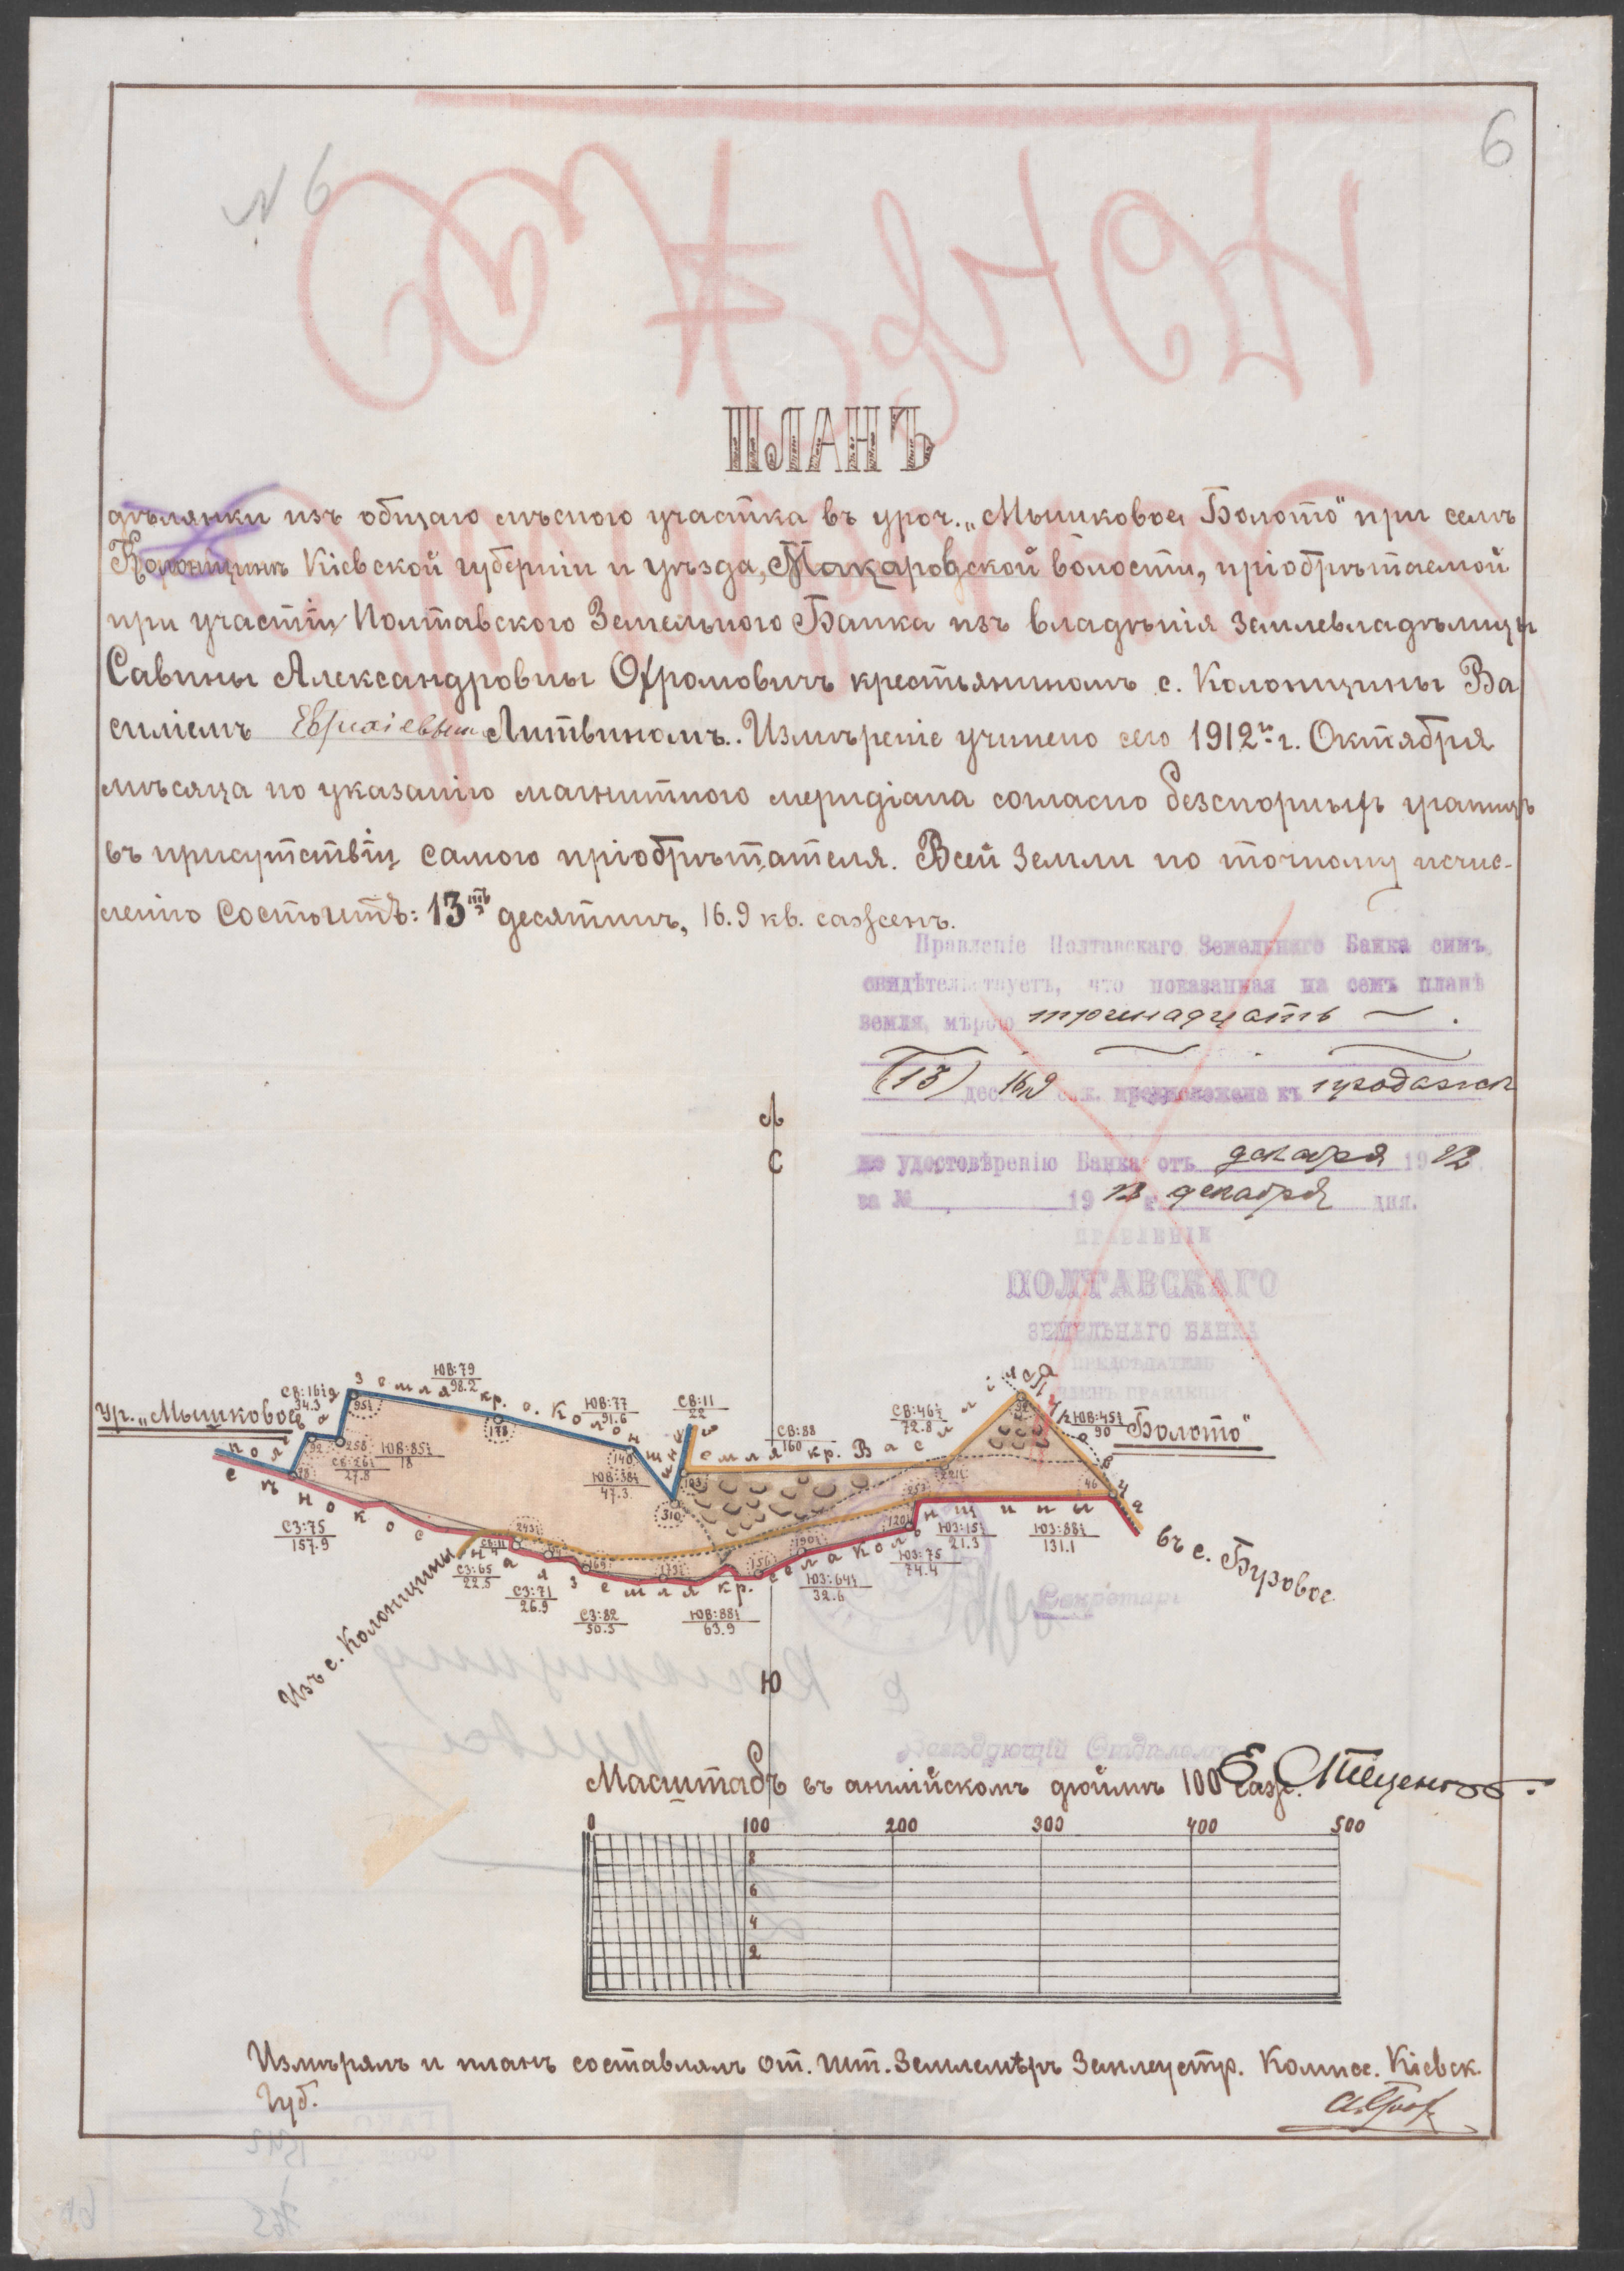 6
№ 6
ПЛАНЪ
дѣлянки изъ общаго лѣсного участка въ уроч. „Мышковое Болото" при селѣ
Колонщинѣ Кіевской губерніи и уѣзда, Макаровской волости, пріобрѣтаемой
при участіи Полтавского Земельного Банка изъ владѣнія землевладѣлицы
Савины Александровны Охромовичъ крестьяниномъ с. Колонщины Ва
силіемъ Литвиномъ. Измѣреніе учинено сего 1912го г. Октября
мѣсяца по указанію магнитного меридіана согласно безспорныхъ границъ
въ присутствіи самого пріобрѣтателя. Всей земли по точному исчис-
ленію состоитъ: 13ть десятинъ, 16.9 кв. саженъ.
Правленіе Полтавскаго Земельнаго Банка симъ
свидѣтельствуетъ, что показанная на семъ планѣ
земля, мѣрою тринадцать
(13) дес. 16,9 саж. предположена къ продажѣ
по удостовѣренію Банка отъ декабря 1912
за № 19 12 г. декабря дня.
ПРАВЛЕНІЕ
ПОЛТАВСКАГО
ЗЕМЕЛЬНАГО БАНКА
ПРЕДСѢДАТЕЛЬ
ЧЛЕНЪ ПРАВЛЕНІЯ
С
ЮВ:79
98.2
СВ:16½
34.3
Ур. „Мышковое
Земля кр. с. Колонщины
ЮВ:77
91.6
СВ:11
22
СВ:88
160
СВ:46½
72.8
ЮВ:45½
90
Болото"
Земля кр. Василія
95½
178
92
258
ЮВ:85½
18
СВ:26½
27.8
140
ЮВ:38½
47.3
103
310
221½
92
46
СЗ:75
157.9
СЗ:65
22.5
СЗ:71
26.9
СЗ:82
50.5
ЮВ:88½
63.9
ЮЗ:64½
32.6
ЮЗ:75
74.4
ЮЗ:15½
21.3
ЮЗ:88½
131.1
Сѣнокосная земля кр. села Колонщины
Изъ с. Колонщины
въ с. Бузовое
Секретарь
Ю
Завѣдующій Отдѣломъ
Масштабъ въ англійскомъ дюймѣ 100 саж.
0 100 200 300 400 500
8
6
4
2
Измѣрялъ и планъ составлялъ от. шт. Землемѣръ Землеустр. Комисс. Кіевск.
Губ.